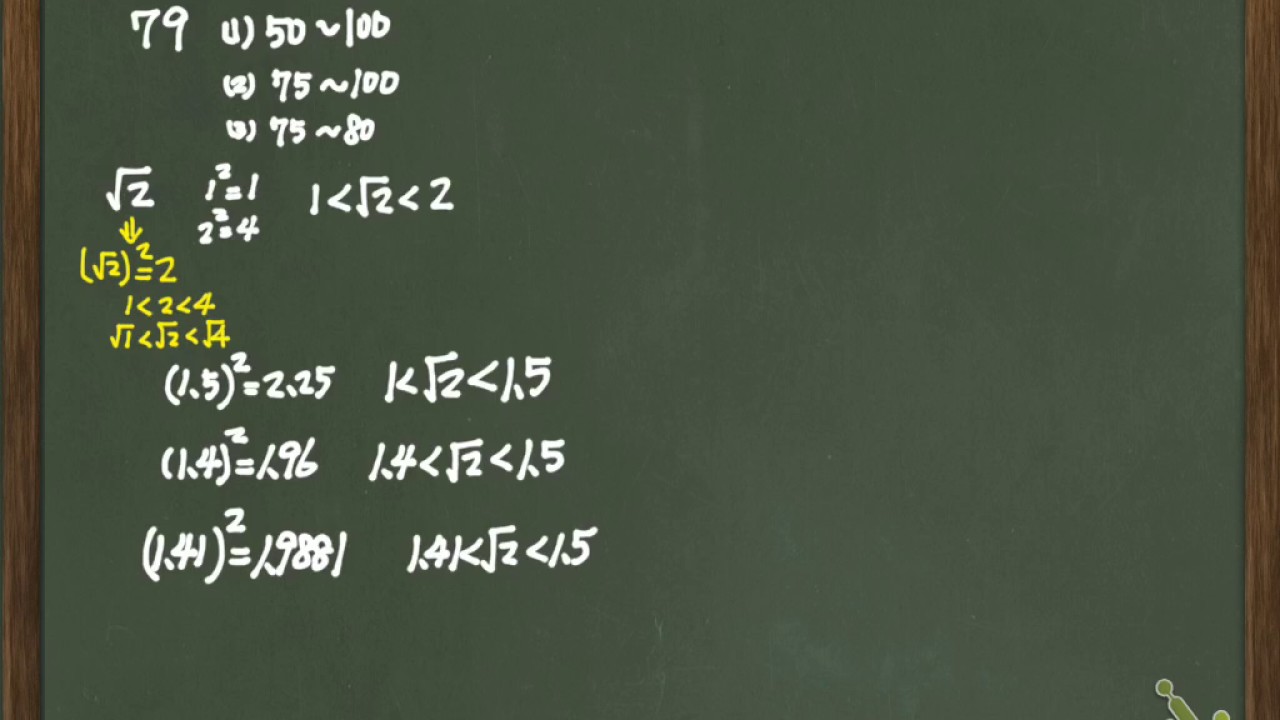 79 (1) 50~100
(2) 75~100
(3) 75~80
√2 1²=1 1<√2<2
2²=4
⇓
(√2)²=2
1<2<4
√1<√2<√4
(1.5)²=2.25 1<√2<1.5
(1.4)²=1.96 1.4<√2<1.5
(1.41)²=1.9881 1.41<√2<1.5